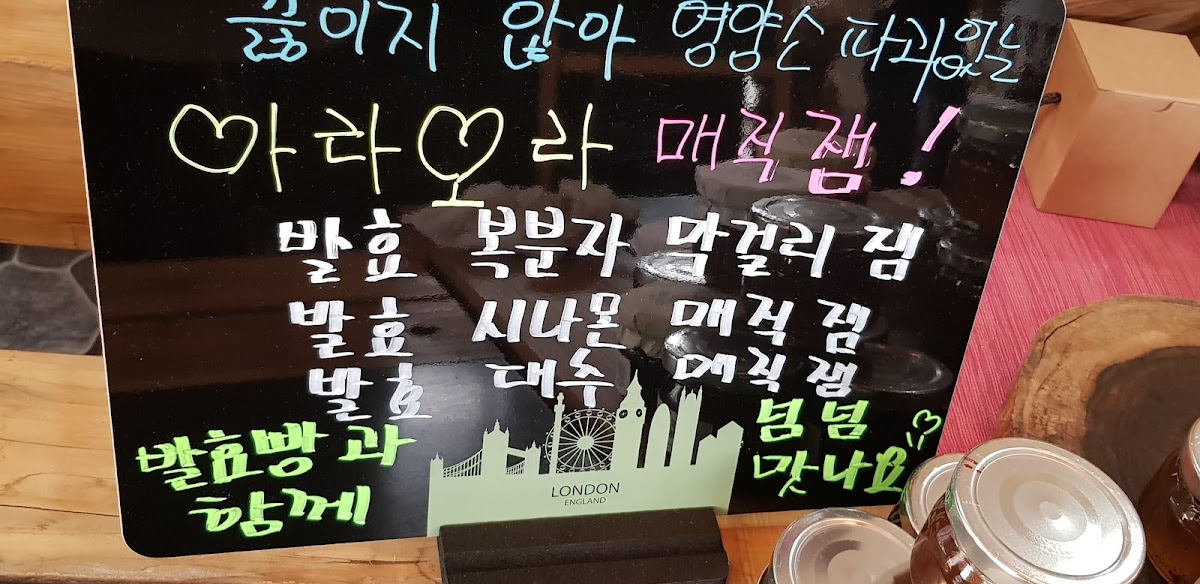 끓이지 않아 영양소 파괴없는
아라오라 매직잼!
발효 복분자 막걸리 잼
발효 시나몬 매직 잼
발효 대추 매직잼
발효빵과
함께
넘넘
맛나요
LONDON
ENGLAND